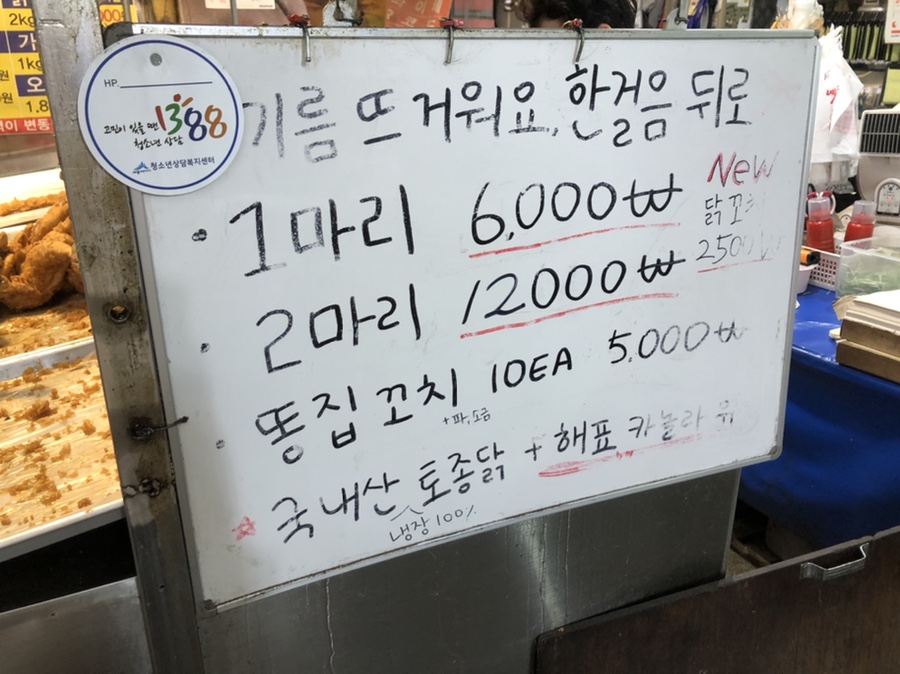 2kg
1kg
1.8
HP.
고민이 있을 땐 1388
청소년 상담
청소년상담복지센터
기름 뜨거워요, 한걸음 뒤로
• 1마리 6,000₩
New
닭꼬치
2500₩
• 2마리 12000₩
• 똥집 꼬치 10EA 5,000₩
+파,소금
☆ 국내산 토종닭 + 해표 카놀라 유
냉장 100%